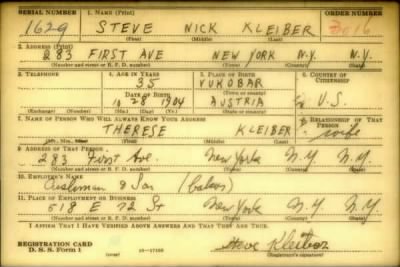 SERIAL NUMBER 1. NAME (Print) ORDER NUMBER
1629 STEVE NICK KLEIBER 3016
(First) (Middle) (Last)
2. ADDRESS (Print)
283 FIRST AVE NEW YORK N.Y. N.Y.
(Number and street or R. F. D. number) (Town) (County) (State)
3. TELEPHONE 4. AGE IN YEARS 5. PLACE OF BIRTH 6. COUNTRY OF CITIZENSHIP
35 VUKOBAR
DATE OF BIRTH (Town or county)
10 28 1904 AUSTRIA U.S.
(Exchange) (Number) (Mo.) (Day) (Yr.) (State or country)
7. NAME OF PERSON WHO WILL ALWAYS KNOW YOUR ADDRESS 8. RELATIONSHIP OF THAT PERSON
THERESE KLEIBER wife
(First) (Middle) (Last)
9. ADDRESS OF THAT PERSON
283 First Ave. New York N.Y N.Y.
(Number and street or R. F. D. number) (Town) (County) (State)
10. EMPLOYER'S NAME
Cushman & Son
11. PLACE OF EMPLOYMENT OR BUSINESS
518 E 72 St New York N.Y N.Y.
(Number and street or R. F. D. number) (Town) (County) (State)
I AFFIRM THAT I HAVE VERIFIED ABOVE ANSWERS AND THAT THEY ARE TRUE.
REGISTRATION CARD
D. S. S. Form 1 16—17105 Steve Kleiber
(Registrant's signature)